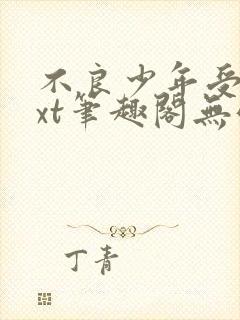 不良少年受
xt筆趣閣無
丁青